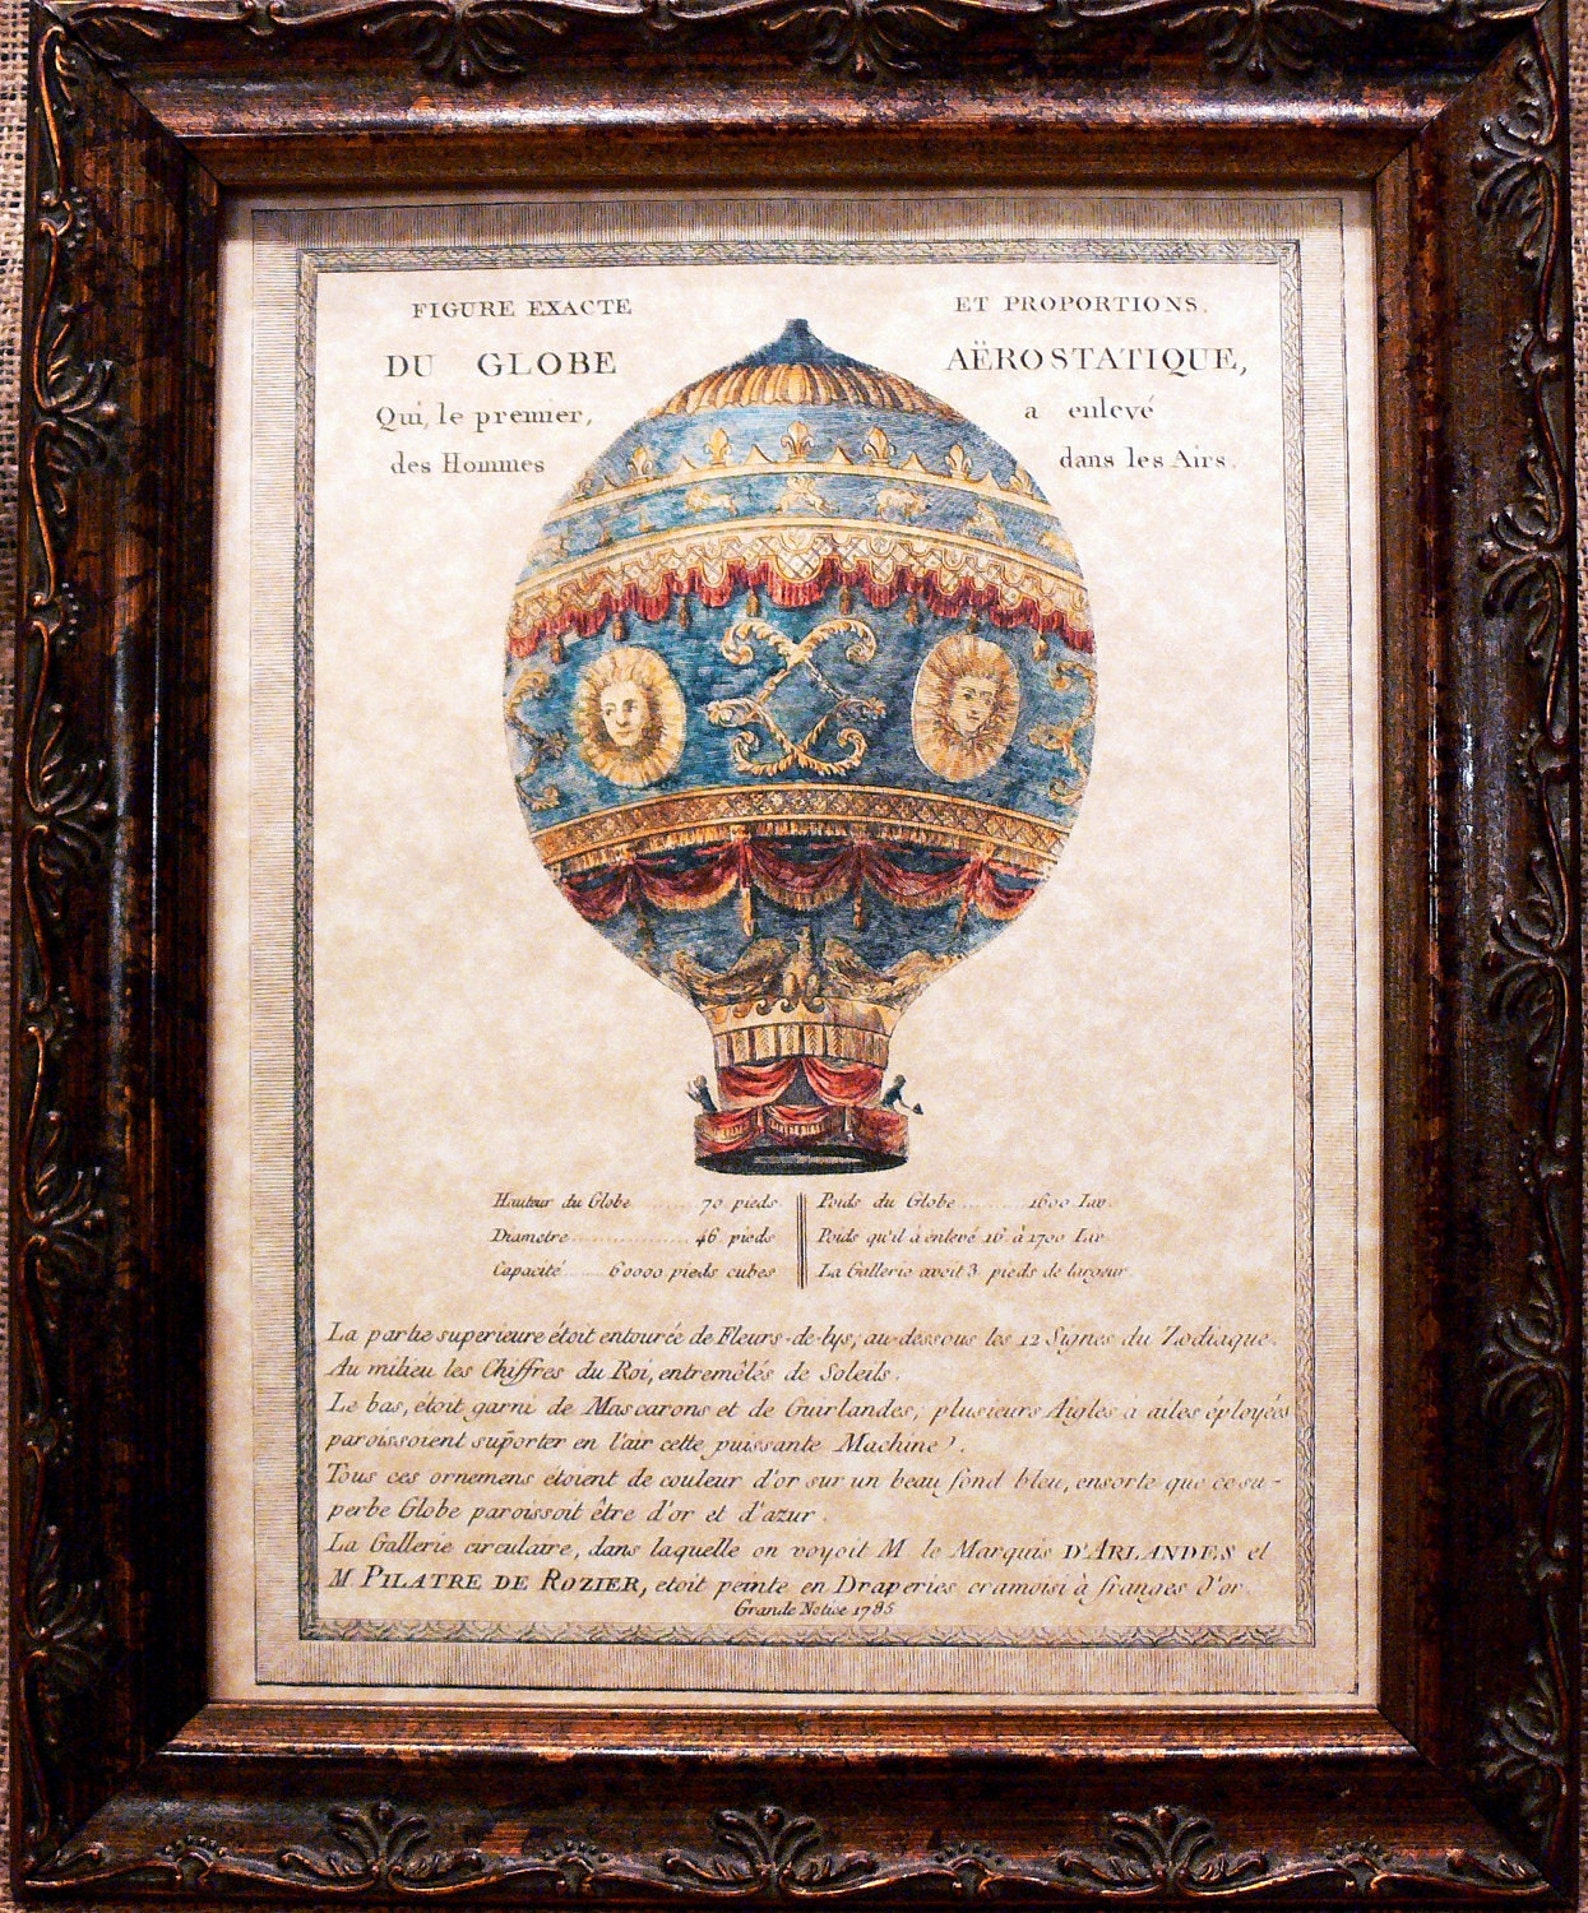 FIGURE EXACTE ET PROPORTIONS.
DU GLOBE AËROSTATIQUE,
Qui, le premier, a enlevé
des Hommes dans les Airs.
Hauteur du Globe ....... 70 pieds.
Diametre ................. 46 pieds
Capacité ...... 60000 pieds cubes
Poids du Globe .......... 1600 Liv.
Poids qu'il à enlevé 16 à 1700 Liv
La Gallerie avoit 3 pieds de largeur.
La partie superieure étoit entourée de Fleurs-de-lys; au-dessous les 12 Signes du Zodiaque.
Au milieu les Chiffres du Roi, entremêlés de Soleils.
Le bas, étoit garni de Mascarons et de Guirlandes; plusieurs Aigles à ailes éployées
paroissoient suporter en l'air cette puissante Machine.
Tous ces ornemens étoient de couleur d'or sur un beau fond bleu, ensorte que ce su-
perbe Globe paroissoit être d'or et d'azur.
La Gallerie circulaire, dans laquelle on voyoit M le Marquis D'ARLANDES et
M. PILATRE DE ROZIER, etoit peinte en Draperies cramoisi à franges d'or.
Grande Notice 1785